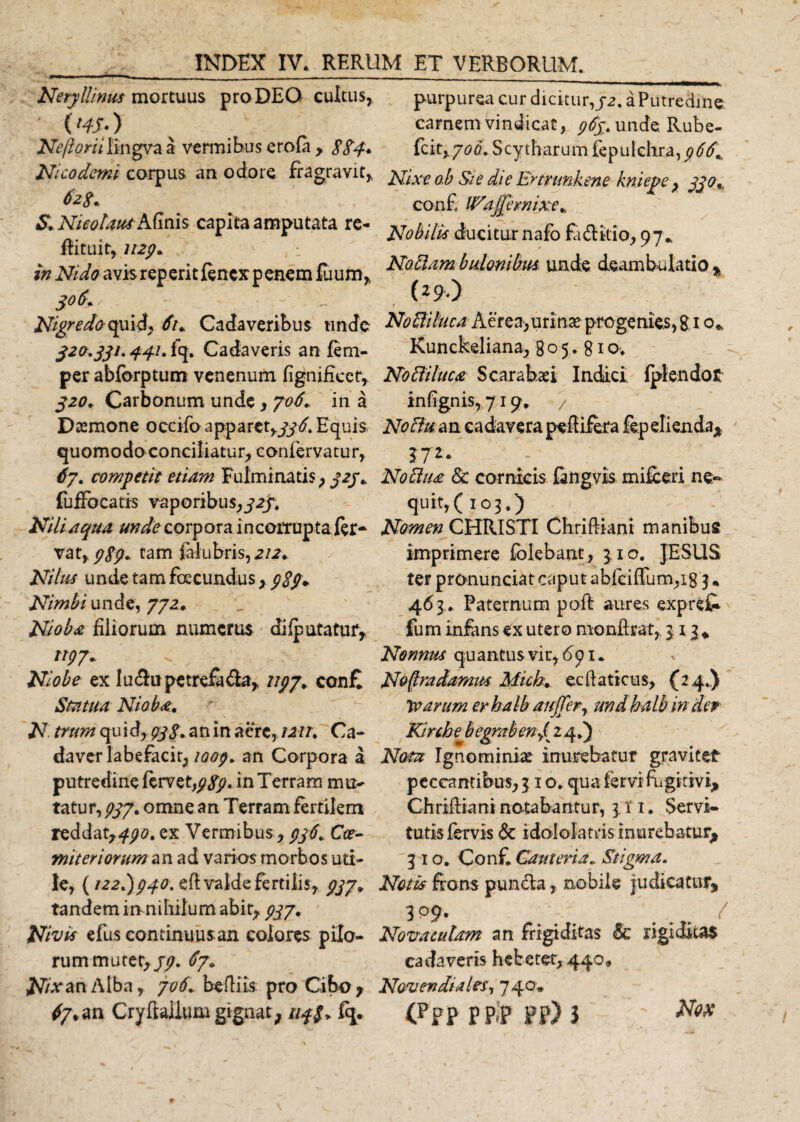 INDEX IV. RERUM ET VERBORUM.
Neryllinus mortuus pro DEO cultus,
(145.)
Neſtorii lingva a vermibus eroſa, 884.
Nicodemi corpus an odore fragravit,
628.
S. Nicolaus Aſinis capita amputata re-
ſtituit, 1129.
in Nido avis reperit ſenex penem ſuum,
306.
Nigredo quid, 61. Cadaveribus unde
320. 331. 441. ſq. Cadaveris an ſem-
per abſorptum venenum ſignificet,
320. Carbonum unde, 706. in à
Dæmone occiſo apparet, 336. Equis
quomodo conciliatur, conſervatur,
67. competit etiam Fulminatis, 325.
ſuffocatis vaporibus, 32ſ.
Nili aqua unde corpora incorrupta ſer-
vat, 989. tam ſalubris, 212.
Nilus unde tam fœcundus, 989.
Nimbi unde, 772.
Niobæ filiorum numerus diſputatur,
1197.
Niobe ex luctu petrefacta, 1197. conf.
Statua Niobæ.
Nitrum quid, 938. an in aëre, 1211. Ca-
daver labefacit, 1009. an Corpora à
putredine ſervet, 989. in Terram mu-
tatur, 937. omne an Terram fertilem
reddat, 490. ex Vermibus, 936. Cœ-
miteriorum an ad varios morbos uti-
le, (122.) 940. eſt valde fertilis, 937.
tandem in nihilum abit, 937.
Nivis eſus continuus an colores pilo-
rum mutet, 59. 67.
Nix an Alba, 706. beſtiis pro Cibo,
67. an Cryſtallum gignat, 1148. ſq.
purpurea cur dicitur, 52. à Putredine
carnem vindicat, 965. unde Rube-
ſcit, 706. Scytharum ſepulchra, 966.
Nixe ob Sie die Ertrunkene kniepe, 330.
conf. Waſſernixe.
Nobilis ducitur naſo factitio, 97.
Noctambulonibus unde deambulatio,
(29.)
Noctiluca Aërea, urinæ progenies, 810.
Kunckeliana, 805. 810.
Noctilucæ Scarabæi Indici ſplendor
inſignis, 719.
Noctu an cadavera peſtifera ſepelienda,
372.
Noctuæ & cornicis ſangvis miſceri ne-
quit, (103.)
Nomen CHRISTI Chriſtiani manibus
imprimere ſolebant, 310. JESUS
ter pronunciat caput abſciſſum, 183.
463. Paternum poſt aures expreſ-
ſum infans ex utero monſtrat, 313.
Nonnus quantus vir, 691.
Noſtradamus Mich. ecſtaticus, (24.)
warum er halb auſſer, und halb in der
Kirche begraben, (24.)
Nota Ignominiæ inurebatur graviter
peccantibus, 310. qua ſervi fugitivi,
Chriſtiani notabantur, 311. Servi-
tutis ſervis & idololatris inurebatur,
310. Conf. Cauteria. Stigma.
Notis frons puncta, nobile judicatur,
309.
Novaculam an frigiditas & rigiditas
cadaveris hebetet, 440.
Novendiales, 740.
(Ppp pp;p pp) 3 Nox